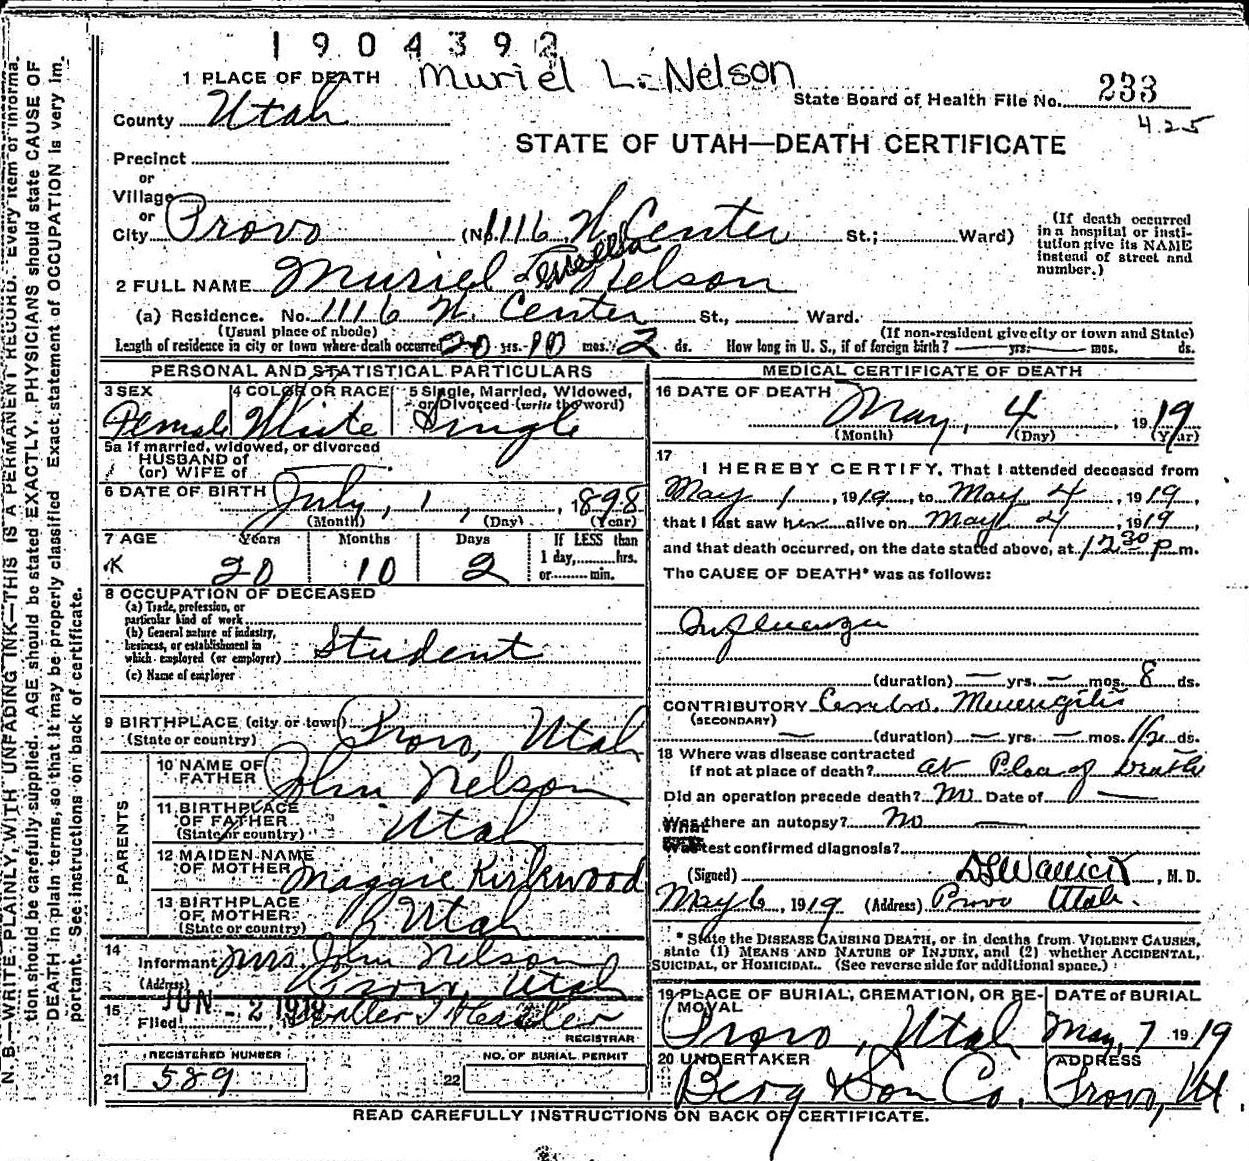 1904392
1 PLACE OF DEATH Muriel L. Nelson
State Board of Health File No. 233
425
County Utah
STATE OF UTAH—DEATH CERTIFICATE
Precinct
or
Village
or
City Provo (No. 1116 W. Center St.; Ward)
(If death occurred in a hospital or institution give its NAME instead of street and number.)
2 FULL NAME Muriel Nelson
(a) Residence. No. 1116 W. Center St., Ward.
(Usual place of abode) (If non-resident give city or town and State)
Length of residence in city or town where death occurred 20 yrs. 10 mos. 2 ds. How long in U. S., if of foreign birth? — yrs. — mos. ds.
PERSONAL AND STATISTICAL PARTICULARS
3 SEX Female
4 COLOR OR RACE White
5 Single, Married, Widowed, or Divorced (write the word) Single
5a If married, widowed, or divorced
HUSBAND of
(or) WIFE of
6 DATE OF BIRTH July, 1, 1898
(Month) (Day) (Year)
7 AGE Years Months Days If LESS than
1 day, hrs.
or min.
K 20 10 2
8 OCCUPATION OF DECEASED
(a) Trade, profession, or
particular kind of work
(b) General nature of industry,
business, or establishment in
which employed (or employer) Student
(c) Name of employer
9 BIRTHPLACE (city or town) Provo, Utah
(State or country)
PARENTS
10 NAME OF FATHER John Nelson
11 BIRTHPLACE OF FATHER Utah
(State or country)
12 MAIDEN NAME OF MOTHER Maggie Kirkwood
13 BIRTHPLACE OF MOTHER Utah
(State or country)
14
Informant Mrs. John Nelson
(Address) Provo, Utah
15
Filed JUN - 2 1919
REGISTRAR
REGISTERED NUMBER
21 589
NO. OF BURIAL PERMIT
22
MEDICAL CERTIFICATE OF DEATH
16 DATE OF DEATH May, 4, 1919
(Month) (Day) (Year)
17
I HEREBY CERTIFY, That I attended deceased from
May 1, 1919, to May 4, 1919,
that I last saw her alive on May 4, 1919,
and that death occurred, on the date stated above, at 1230 p m.
The CAUSE OF DEATH* was as follows:
Influenza
(duration) — yrs. — mos. 8 ds.
CONTRIBUTORY Cerebro. Menengitis
(SECONDARY)
— (duration) — yrs. — mos. 1/2 ds.
18 Where was disease contracted
if not at place of death? at Place of Death
Did an operation precede death? No Date of —
Was there an autopsy? No —
What test confirmed diagnosis?
(Signed) , M. D.
May 6, 1919 (Address) Provo Utah.
* State the DISEASE CAUSING DEATH, or in deaths from VIOLENT CAUSES,
state (1) MEANS AND NATURE OF INJURY, and (2) whether ACCIDENTAL,
SUICIDAL, or HOMICIDAL. (See reverse side for additional space.)
19 PLACE OF BURIAL, CREMATION, OR RE-
MOVAL
Provo, Utah
DATE of BURIAL
May, 7 1919
20 UNDERTAKER
Berg & Son Co.
ADDRESS
Provo, Ut.
READ CAREFULLY INSTRUCTIONS ON BACK OF CERTIFICATE.
N. B.—WRITE PLAINLY, WITH UNFADING INK—THIS IS A PERMANENT RECORD. Every item of informa-
tion should be carefully supplied. AGE should be stated EXACTLY. PHYSICIANS should state CAUSE OF
DEATH in plain terms, so that it may be properly classified. Exact statement of OCCUPATION is very im-
portant. See instructions on back of certificate.